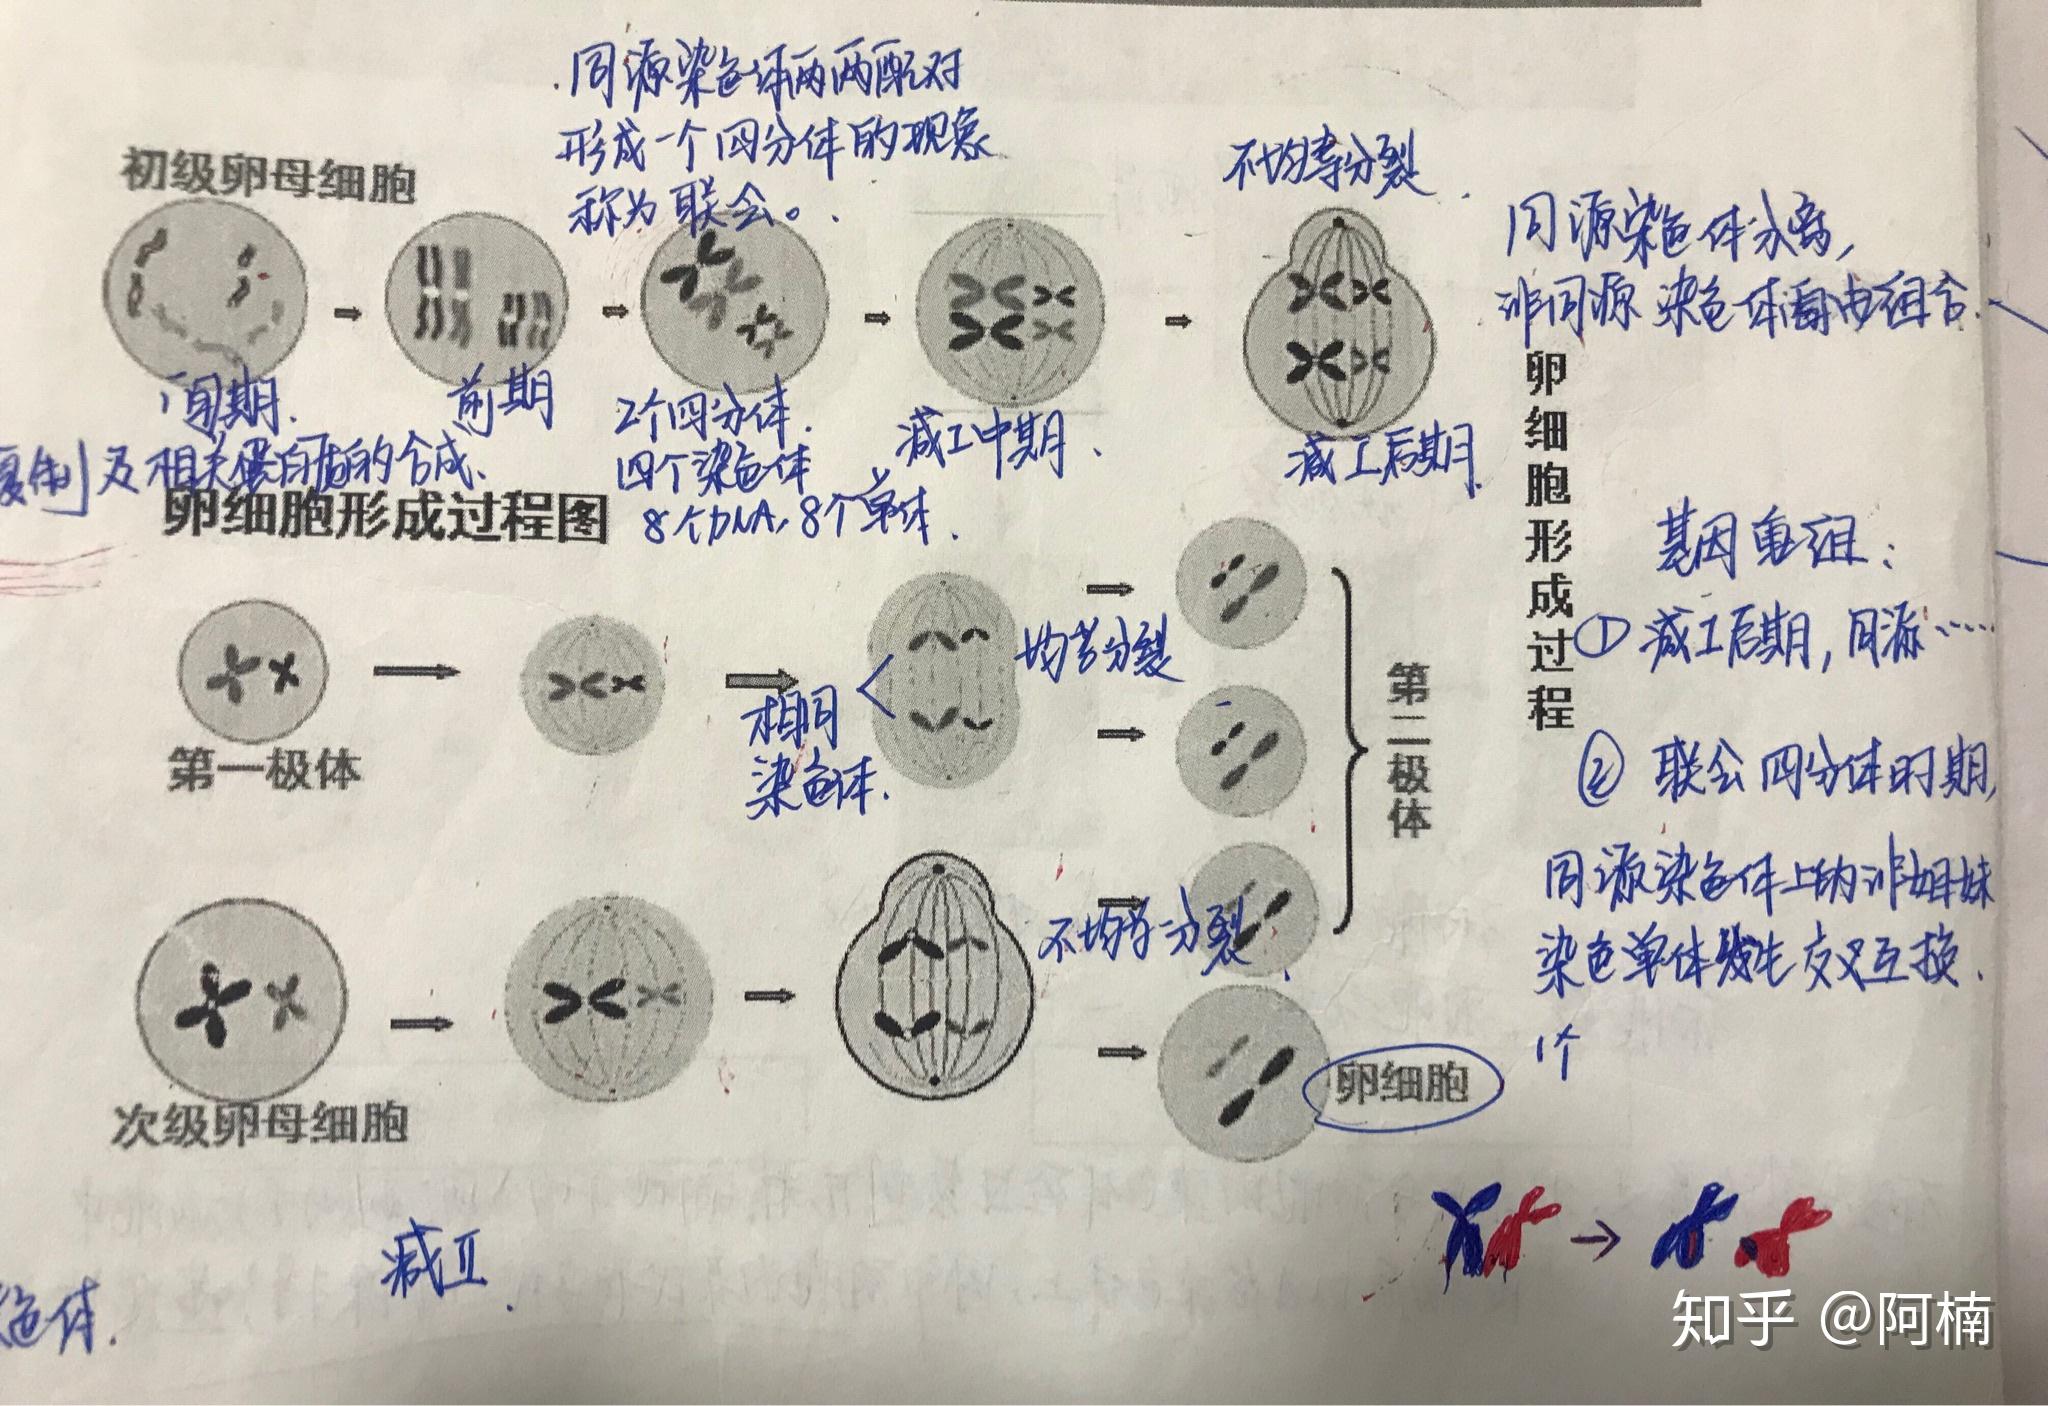 同源染色体两两配对
形成一个四分体的现象
称为联会。
初级卵母细胞
不均等分裂
同源染色体分离,
非同源染色体自由组合.
间期.
前期
2个四分体.
四个染色体
8个DNA,8个单体.
减I中期.
减I后期.
复制及相关蛋白质的合成、
卵细胞形成过程图
卵细胞形成过程
基因重组:
①减I后期,同源……
②联会四分体时期,
同源染色体上的非姐妹
染色单体发生交叉互换.
1个
第一极体
相同
染色体.
均等分裂
第二极体
不均等分裂.
次级卵母细胞
卵细胞
减II.
色体.
知乎 @阿楠